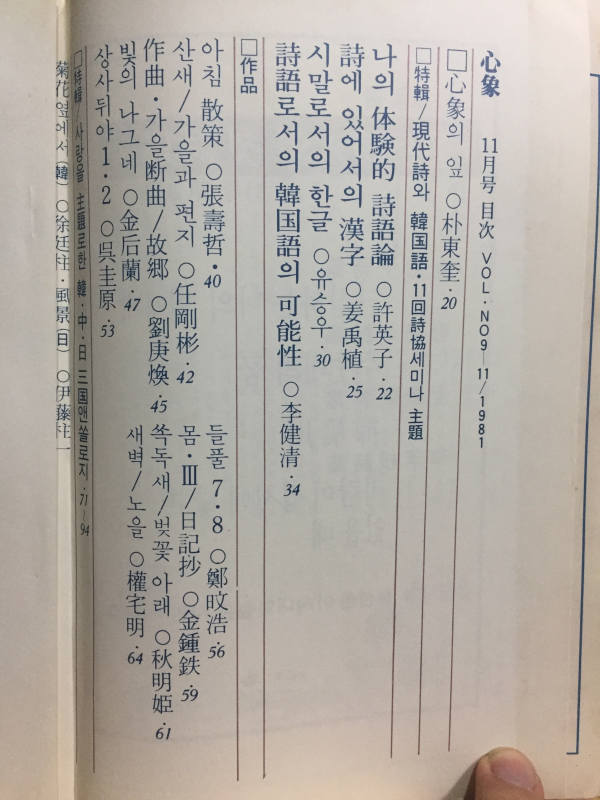 心象 11月号 目次 VOL·NO9—11/1981
□心象의 잎 ○朴東奎·20
□特輯/現代詩와 韓国語·11回詩協세미나 主題
나의 体験的 詩語論 ○許英子·22
詩에 있어서의 漢字 ○姜禹植·25
시말로서의 한글 ○유승우·30
詩語로서의 韓国語의 可能性 ○李健清·34
□作品
아침 散策 ○張壽哲·40
산새/가을과 편지 ○任剛彬·42
作曲·가을断曲/故郷 ○劉庚煥·45
빛의 나그네 ○金后蘭·47
상사뒤야 1·2 ○呉圭原·53
들풀 7·8 ○鄭旼浩·56
몸·Ⅲ/日記抄 ○金鍾鉄·59
쏙독새/벚꽃 아래 ○秋明姫·61
새벽/노을 ○權宅明·64
□特輯/사랑을 主題로한 韓·中·日 三国앤쏠로지·71~94
菊花옆에서(韓) ○徐廷柱·風景(日) ○伊藤桂一